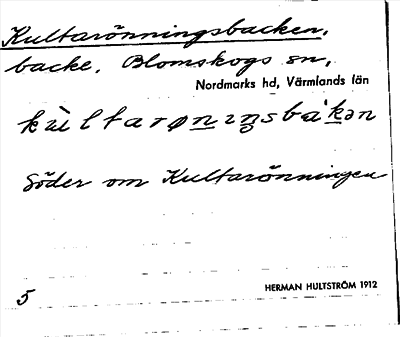 Kultarönningsbacken,
backe. Blomskogs sn,
Nordmarks hd, Värmlands län
kùltarøniŋsbákən
Söder om Kultarönningen
5
HERMAN HULTSTRÖM 1912